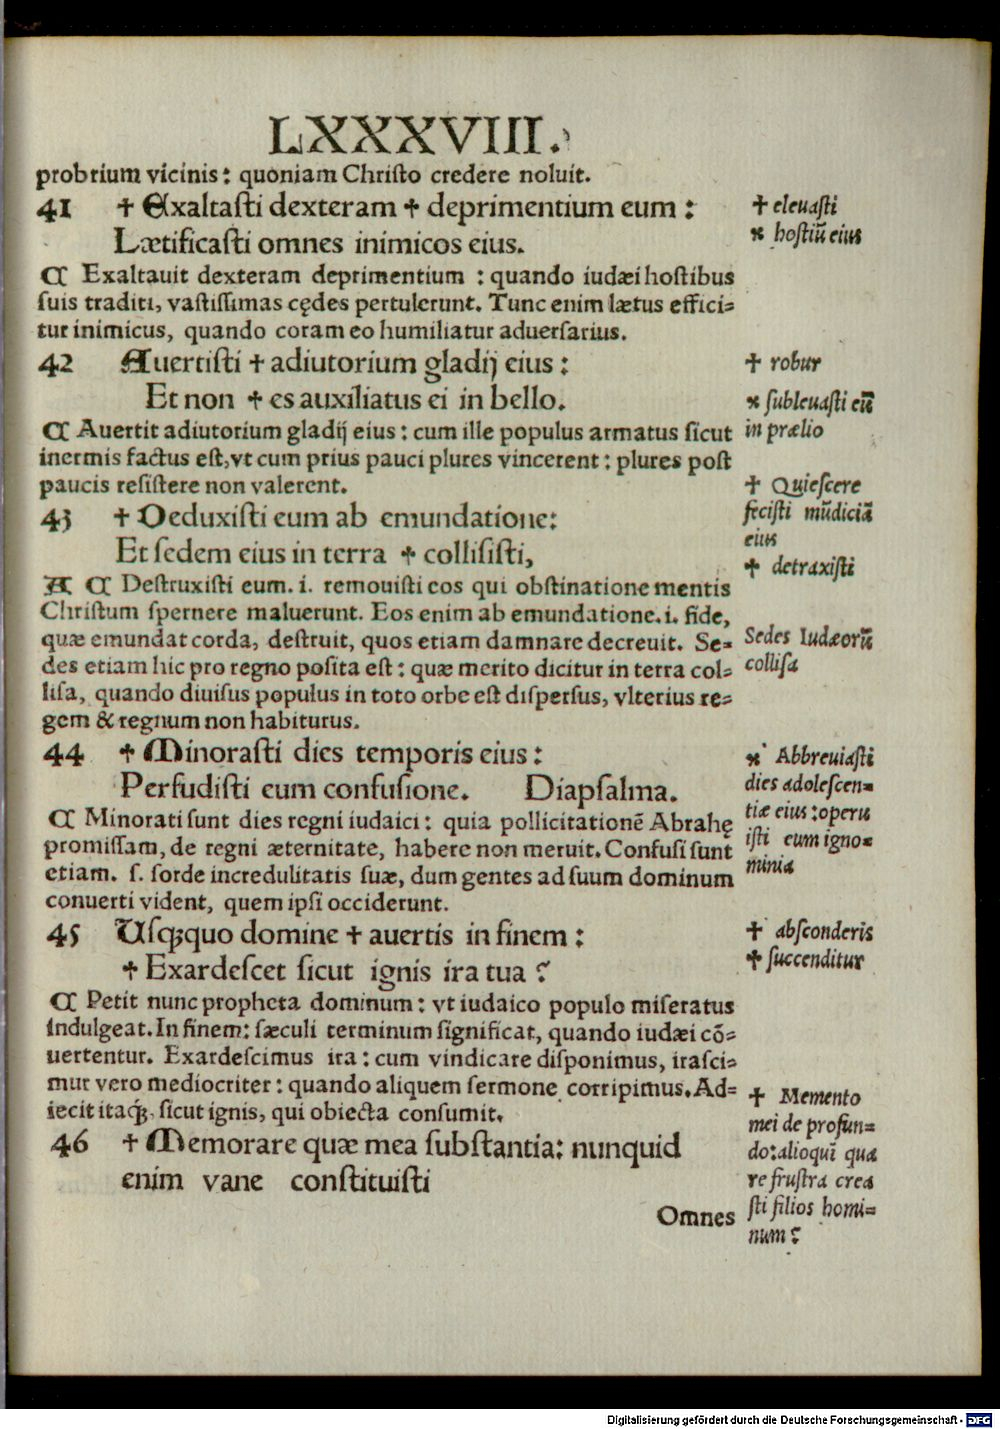 LXXXVIII.
probrium vicinis: quoniam Chriſto credere noluit.
41 ✝ Exaltaſti dexteram ✝ deprimentium eum:
Lætificaſti omnes inimicos eius.
✝ eleuaſti
⁜ hoſtiū eius
¶ Exaltauit dexteram deprimentium : quando iudæi hoſtibus
ſuis traditi, vaſtiſſimas cędes pertulerunt. Tunc enim lætus effici⸗
tur inimicus, quando coram eo humiliatur aduerſarius.
42 Auertiſti ✝ adiutorium gladij eius:
Et non ✝ es auxiliatus ei in bello.
✝ robur
⁜ ſubleuaſti eū
in prælio
¶ Auertit adiutorium gladij eius: cum ille populus armatus ſicut
inermis factus eſt, vt cum prius pauci plures vincerent: plures poſt
paucis reſiſtere non valerent.
43 ✝ Deduxiſti eum ab emundatione:
Et ſedem eius in terra ✝ colliſiſti,
✝ Quieſcere
feciſti mūdiciā
eius
✝ detraxiſti
A ¶ Deſtruxiſti eum. i. remouiſti eos qui obſtinatione mentis
Chriſtum ſpernere maluerunt. Eos enim ab emundatione. i. fide,
quæ emundat corda, deſtruit, quos etiam damnare decreuit. Se⸗
des etiam hic pro regno poſita eſt: quæ merito dicitur in terra col⸗
liſa, quando diuiſus populus in toto orbe eſt diſperſus, vlterius re⸗
gem & regnum non habiturus.
Sedes Iudæorū
colliſa
44 ✝ Minoraſti dies temporis eius:
Perfudiſti eum confuſione. Diapſalma.
⁜ Abbreuiaſti
dies adoleſcen⸗
tiæ eius: operu
iſti eum igno⸗
minia
¶ Minorati ſunt dies regni iudaici: quia pollicitationē Abrahę
promiſſam, de regni æternitate, habere non meruit. Confuſi ſunt
etiam. ſ. ſorde incredulitatis ſuæ, dum gentes ad ſuum dominum
conuerti vident, quem ipſi occiderunt.
45 Uſqꝫquo domine ✝ auertis in finem:
✝ Exardeſcet ſicut ignis ira tua?
✝ abſconderis
✝ ſuccenditur
¶ Petit nunc propheta dominum: vt iudaico populo miſeratus
indulgeat. In finem: ſæculi terminum ſignificat, quando iudæi cō⸗
uertentur. Exardeſcimus ira: cum vindicare diſponimus, iraſci⸗
mur vero mediocriter: quando aliquem ſermone corripimus. Ad⸗
iecit itaqꝫ, ſicut ignis, qui obiecta conſumit.
46 ✝ Memorare quæ mea ſubſtantia: nunquid
enim vane conſtituiſti
✝ Memento
mei de profun⸗
do: alioquī qua
re fruſtra crea
ſti filios homi⸗
num?
Omnes
Digitalisierung gefördert durch die Deutsche Forschungsgemeinschaft - DFG